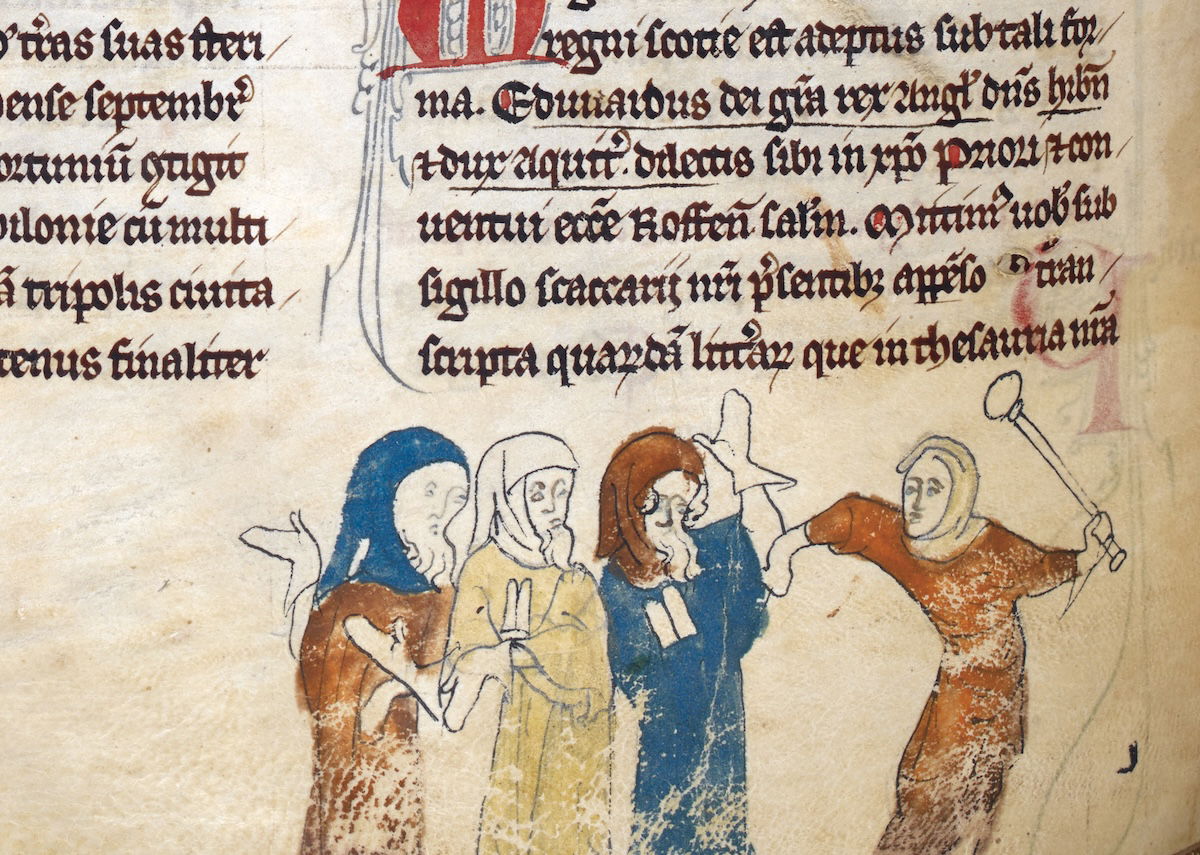 tr̄as suas steri
septembr̄
ꝯtigit
cū multi
tripolis ciuita
tenus finaliter
regni scotie est adeptus sub tali for
ma. Edwardus dei gr̄a rex Angl' dn̄s hib̄n
⁊ dux Aquit̄. dilectis sibi in xp̄o Priori ⁊ con
uentui ecc̄e Roffen̄ sal̄m. Mittim' uob' sub
sigillo scaccarij nr̄i p̄sentibꝫ app̄eso tran
scripta quaꝝdā litt̄aꝝ que in thesauria nr̄a